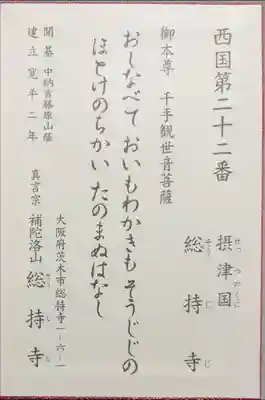 西国第二十二番
摂津国
せっつのくに
総持寺
そうじじ
御本尊 千手観世音菩薩
おしなべて おいもわかきも そうじじの
ほとけのちかい たのまぬはなし
大阪府茨木市総持寺一-六-一
真言宗 補陀洛山 総持寺
そうじじ
開基 中納言藤原山蔭
建立 寛平二年